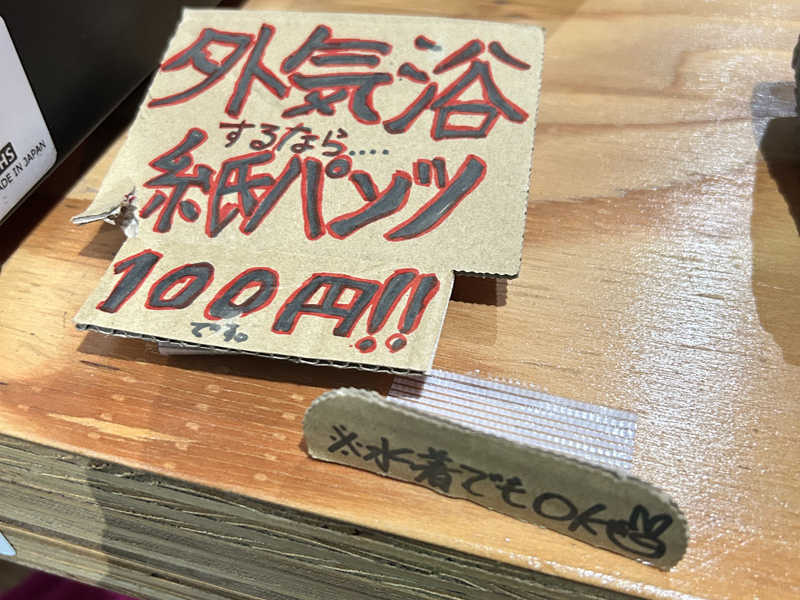 外気浴
するなら....
紙パンツ
100円!!
でね
※水着でもOK✌
HS
ADE IN JAPAN